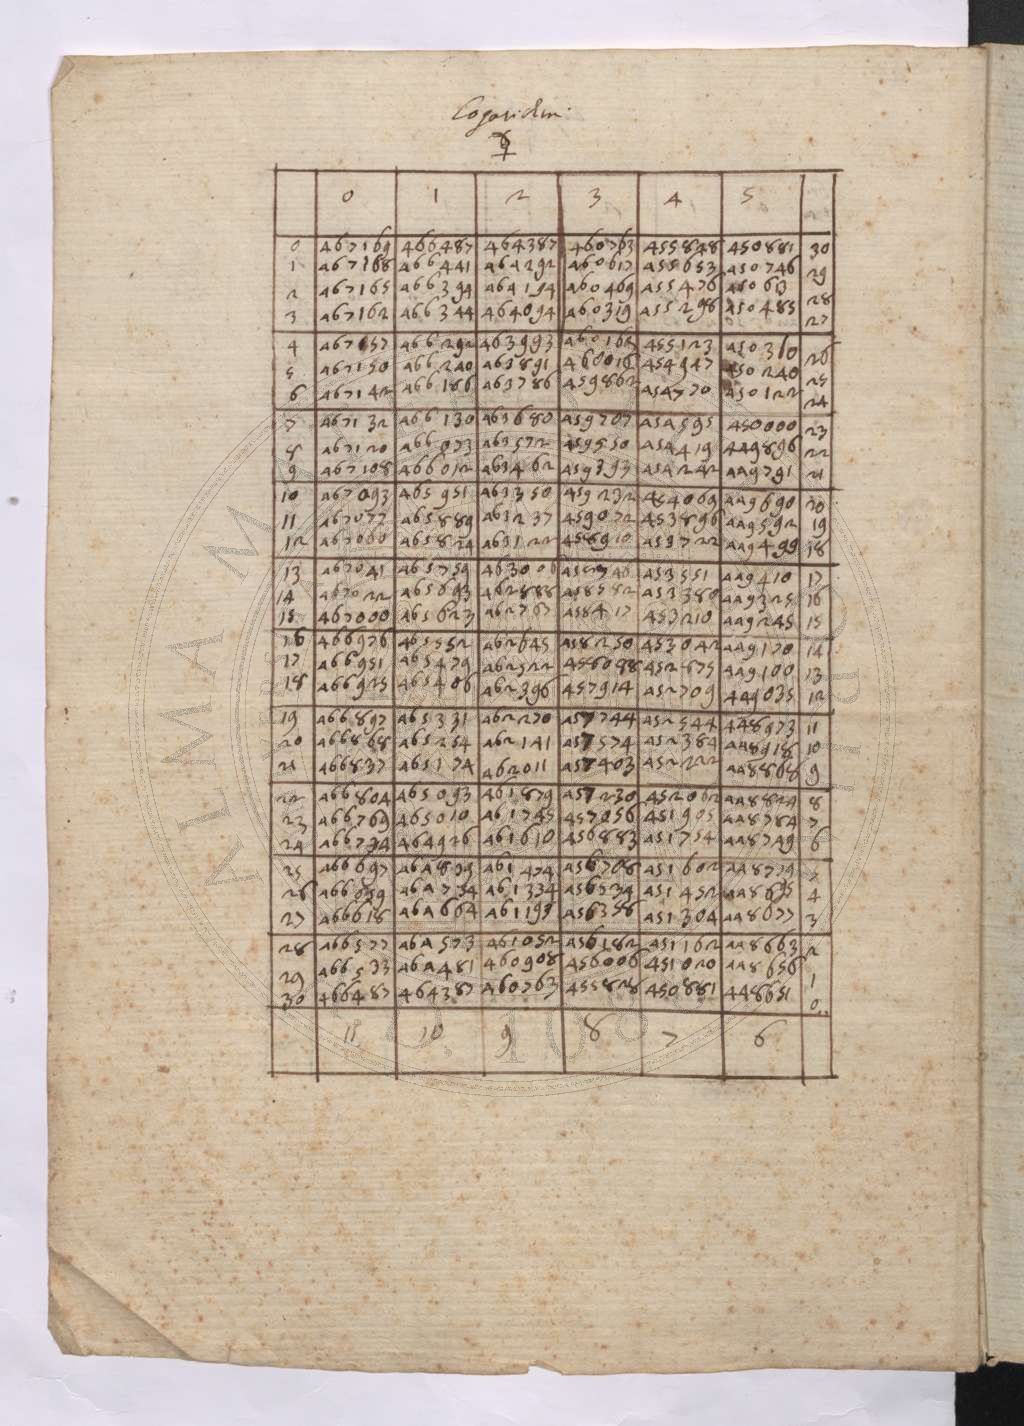 Logaridm.
☿
0 1 2 3 4 5
0 467169 466487 464387 460763 455848 450881 30
1 467168 466441 464292 460617 455653 450746 29
2 467165 466394 464194 460469 455476 45063 28
3 467162 466344 464094 460319 455298 450485 27
4 467157 466292 463993 460168 455123 450360 26
5 467150 466240 463891 460016 454947 450240 25
6 467142 466186 463786 459862 454770 450122 24
7 467132 466130 463680 459707 454595 450000 23
8 467120 466073 463572 459550 454419 449896 22
9 467108 466012 463462 459393 454242 449791 21
10 467093 465951 463350 459232 454069 449690 20
11 467077 465889 463237 459072 453896 449592 19
12 467060 465824 463122 458910 453722 449499 18
13 467041 465759 463006 458746 453551 449410 17
14 467022 465693 462888 458582 453380 449325 16
15 467000 465623 462767 458417 453210 449245 15
16 466976 465552 462645 458250 453042 449170 14
17 466951 465479 462522 458088 452875 449100 13
18 466925 465406 462396 457914 452709 449035 12
19 466897 465331 462270 457744 452544 448973 11
20 466868 465254 462141 457574 452364 448918 10
21 466837 465174 462011 457403 452222 448868 9
22 466804 465093 461879 457230 452062 448824 8
23 466769 465010 461745 457056 451905 448784 7
24 466734 464926 461610 456883 451754 448749 6
25 466697 464839 461474 456708 451602 448719 5
26 466659 464754 461334 456534 451452 448695 4
27 466618 464664 461193 456358 451304 448677 3
28 466577 464573 461052 456182 451162 448663 2
29 466533 464481 460908 456006 451020 448656 1
30 466487 464387 460763 455828 450881 448651 0
11 10 9 8 7 6